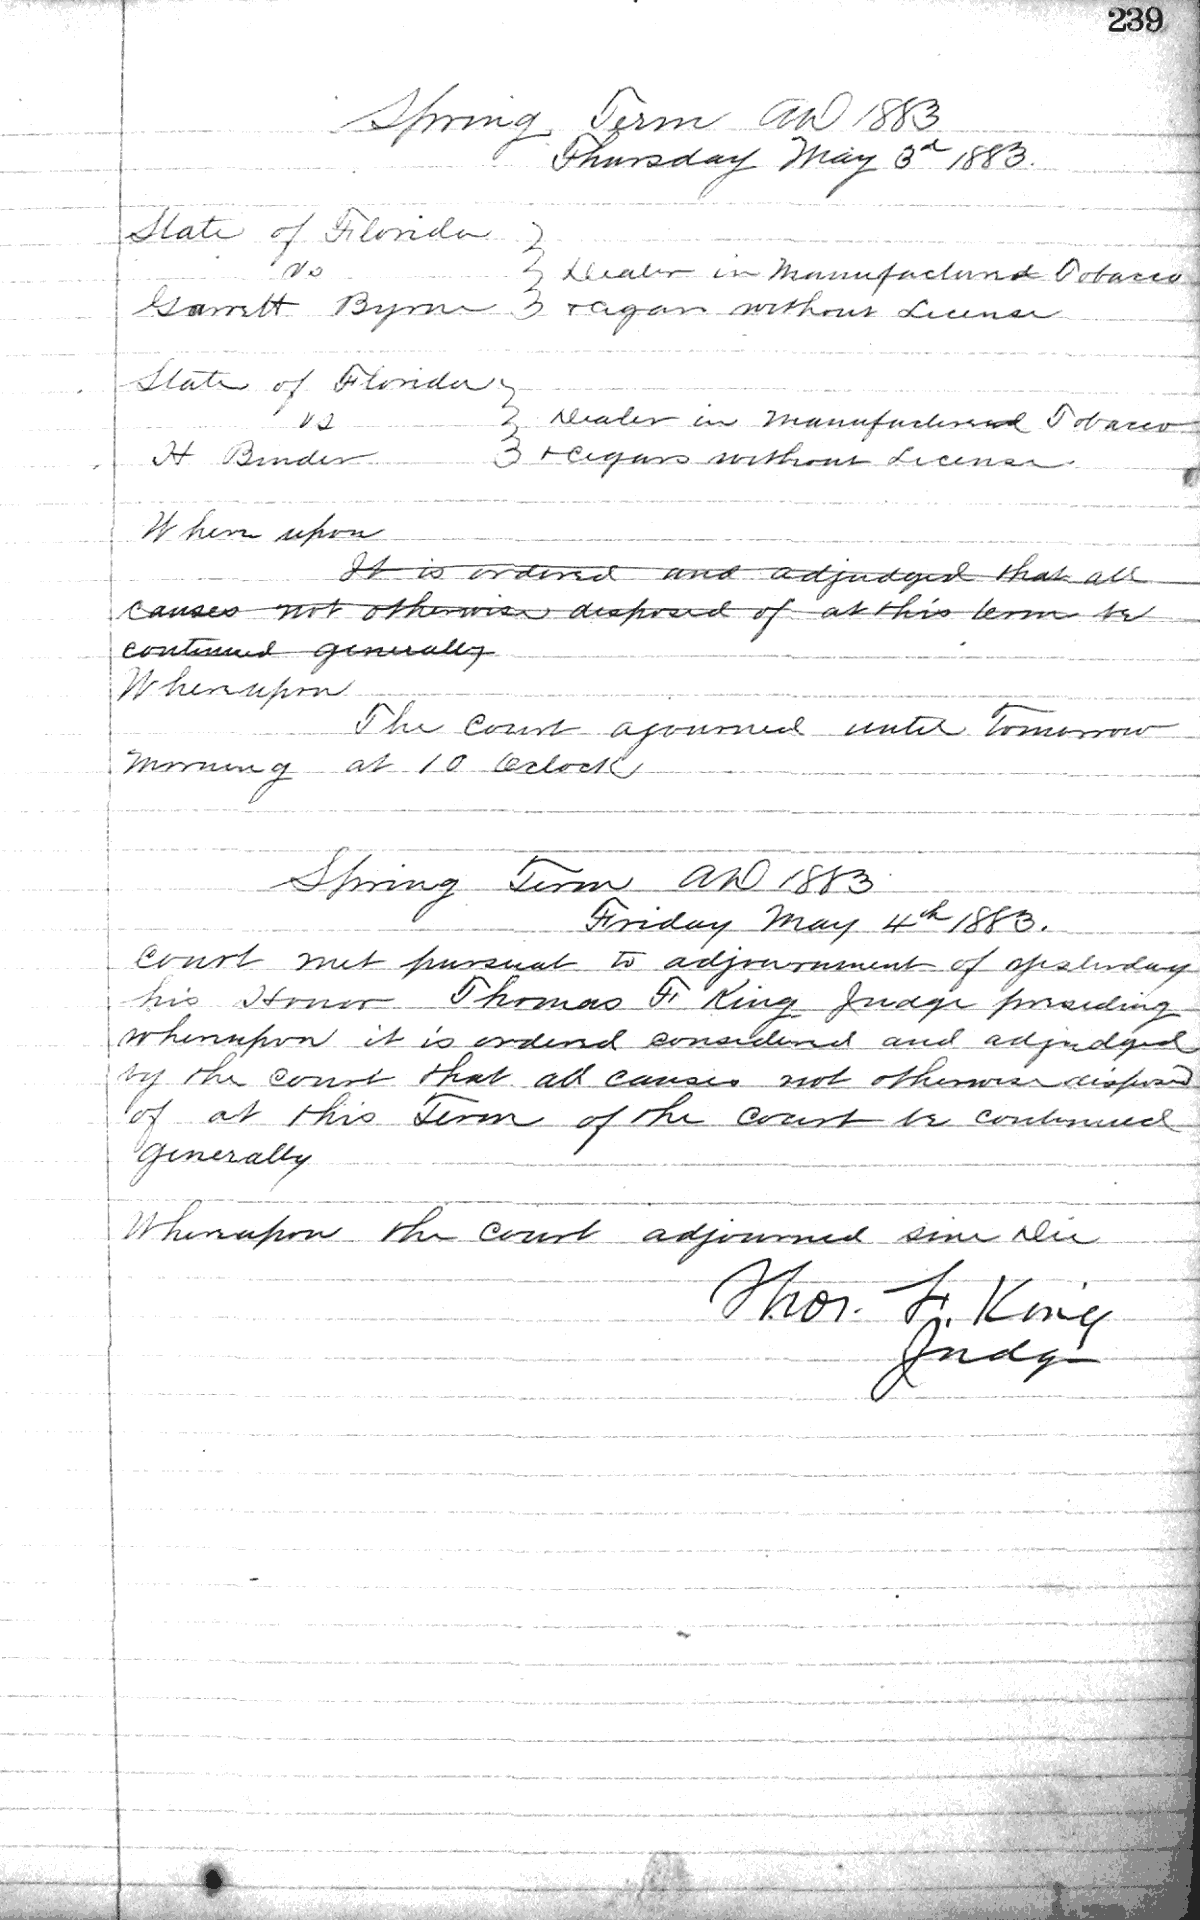 239
Spring Term AD 1883
Thursday May 3d 1883.
State of Florida
vs
Dealer in Manufactured Tobacco
Garrett Byrne
+ Cigars without License
State of Florida
vs
Dealer in Manufactured Tobacco
H Binder
+ Cigars without License
Where upon
It is ordered and adjudged that all
causes not otherwise disposed of at this term be
continued generally
Whereupon
The Court ajourned until Tomorrow
Morning at 10 Oclock
Spring Term AD 1883
Friday May 4th 1883.
Court met pursuat to adjournment of yesterday
his Honor Thomas F. King Judge presiding
whereupon it is ordered considered and adjudged
by the court that all causes not otherwise disposed
of at this Term of the court be continued
generally
Whereupon the court adjourned sine Die
Thos. F. King
Judge